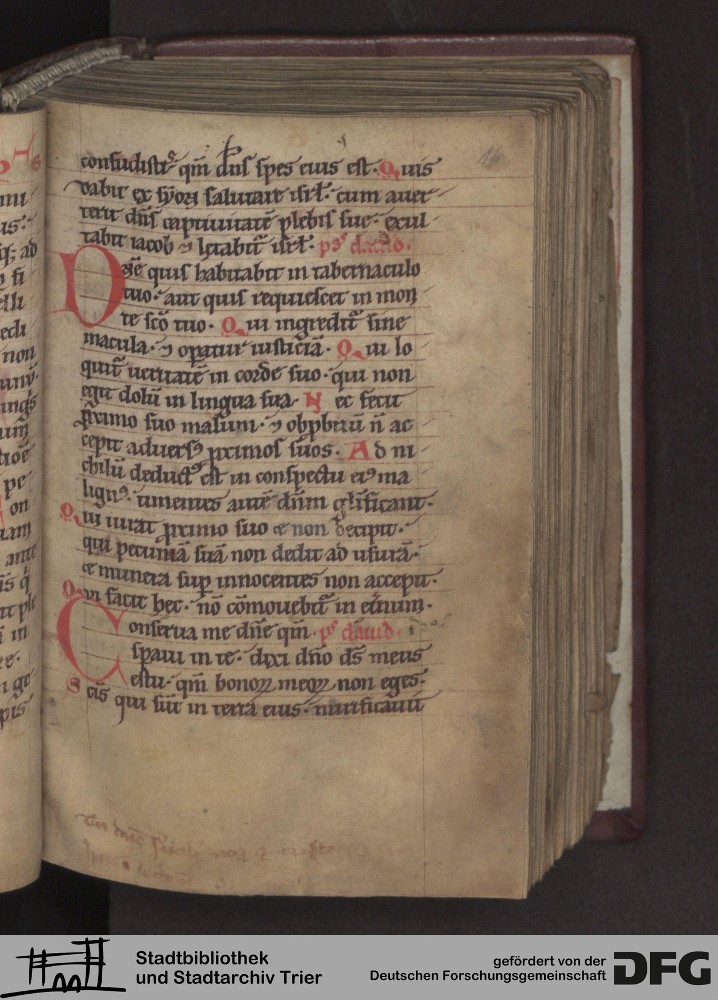 16
confudistis qm̄ dn̄s spes eius est. Quis
dabit ex syon salutare isrl̄. cum auer
terit dn̄s captiuitatē plebis sue. exul
tabit iacob ⁊ letabit᷑ isrl̄. ps̄ dauid.
Dn̄e quis habitabit in tabernaculo
tuo. aut quis requiescet in mon
te sc̄o tuo. Qui ingredit᷑ sine
macula. ⁊ operatur iusticiā. Qui lo
quit᷑ ueritatē in corde suo. qui non
egit dolū in lingua sua. Nec fecit
ꝓximo suo malum. ⁊ obꝓbriū n̄ ac
cepit aduersꝰ ꝓximos suos. Ad ni
chilū deductꝰ est in conspectu eiꝰ ma
lignꝰ. timentes autē dn̄m glīficant.
Qui iurat ꝓximo suo et non decipit.
qui pecuniā suā non dedit ad usurā.
et munera suꝑ innocentes non accepit.
Qui facit hec. nō cōmouebit᷑ in et̄num.
Conserua me dn̄e qm̄ ps̄ dauid.
speraui in te. dixi dn̄o ds̄ meus
es tu. qm̄ bonoꝝ meoꝝ non eges.
Scis qui sūt in terra eius. mirificauit
Stadtbibliothek
und Stadtarchiv Trier
gefördert von der
Deutschen Forschungsgemeinschaft
DFG